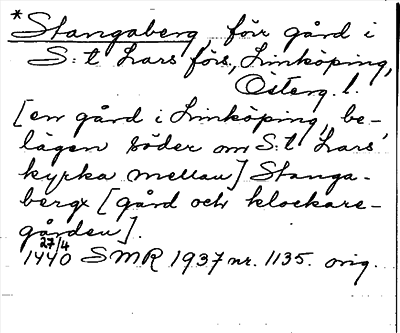 *Stangaberg, förr gård i
S:t Lars förs, Linköping,
Österg. l.
[en gård i Linköping, be-
lägen söder om S:t Lars
kyrka mellan] Stanga-
bergx [gård och klockare-
gården].
27/4
1440 SMR 1937 nr. 1135. orig.